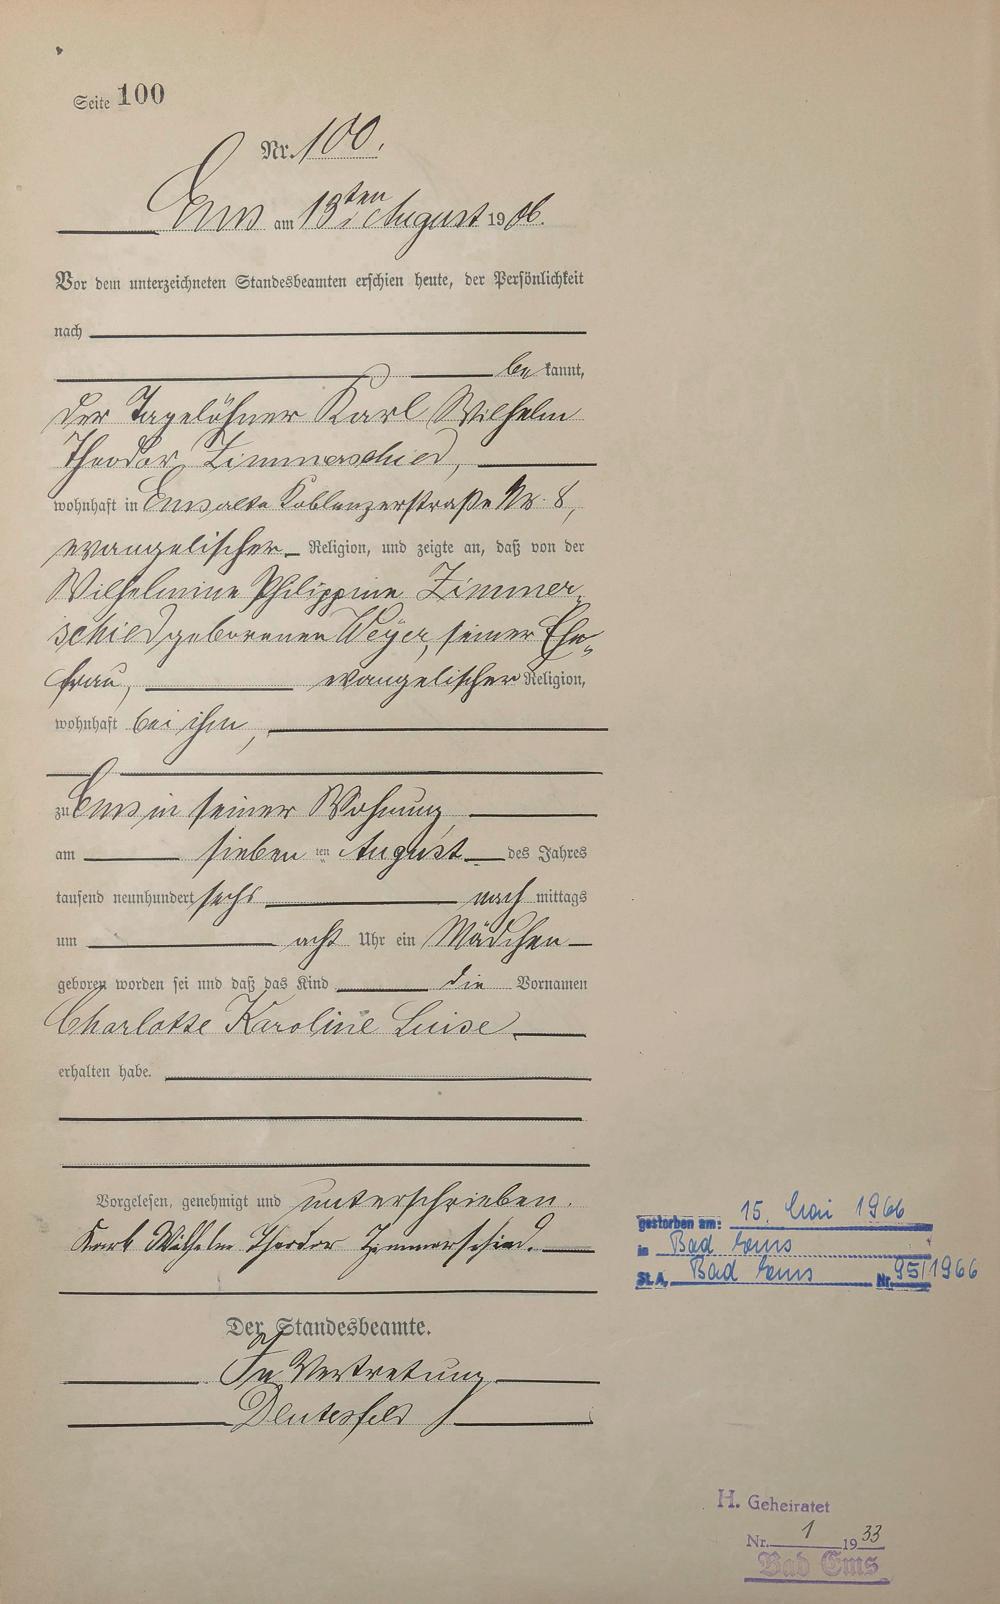 Seite 100
Nr. 100.
Ems am 13ten August 1906.
Vor dem unterzeichneten Standesbeamten erschien heute, der Persönlichkeit
nach
be kannt,
der Tagelöhner Karl Wilhelm
Theodor Zimmerschied,
wohnhaft in Ems alte Koblenzerstraße Nr. 8,
evangelischer Religion, und zeigte an, daß von der
Wilhelmine Philippine Zimmer-
schied geborenen Weyer, seiner Ehe-
frau, evangelischer Religion,
wohnhaft bei ihm,
zu Ems in seiner Wohnung
am sieben ten August des Jahres
tausend neunhundert sechs nach mittags
um acht Uhr ein Mädchen
geboren worden sei und daß das Kind die Vornamen
Charlotte Karoline Luise
erhalten habe.
Vorgelesen, genehmigt und unterschrieben.
Karl Wilhelm Theodor Zimmerschied.
Der Standesbeamte.
In Vertretung
gestorben am: 15. Mai 1966
in Bad Ems
St.A. Bad Ems Nr. 95/1966
H. Geheiratet
Nr. 1 1933
Bad Ems